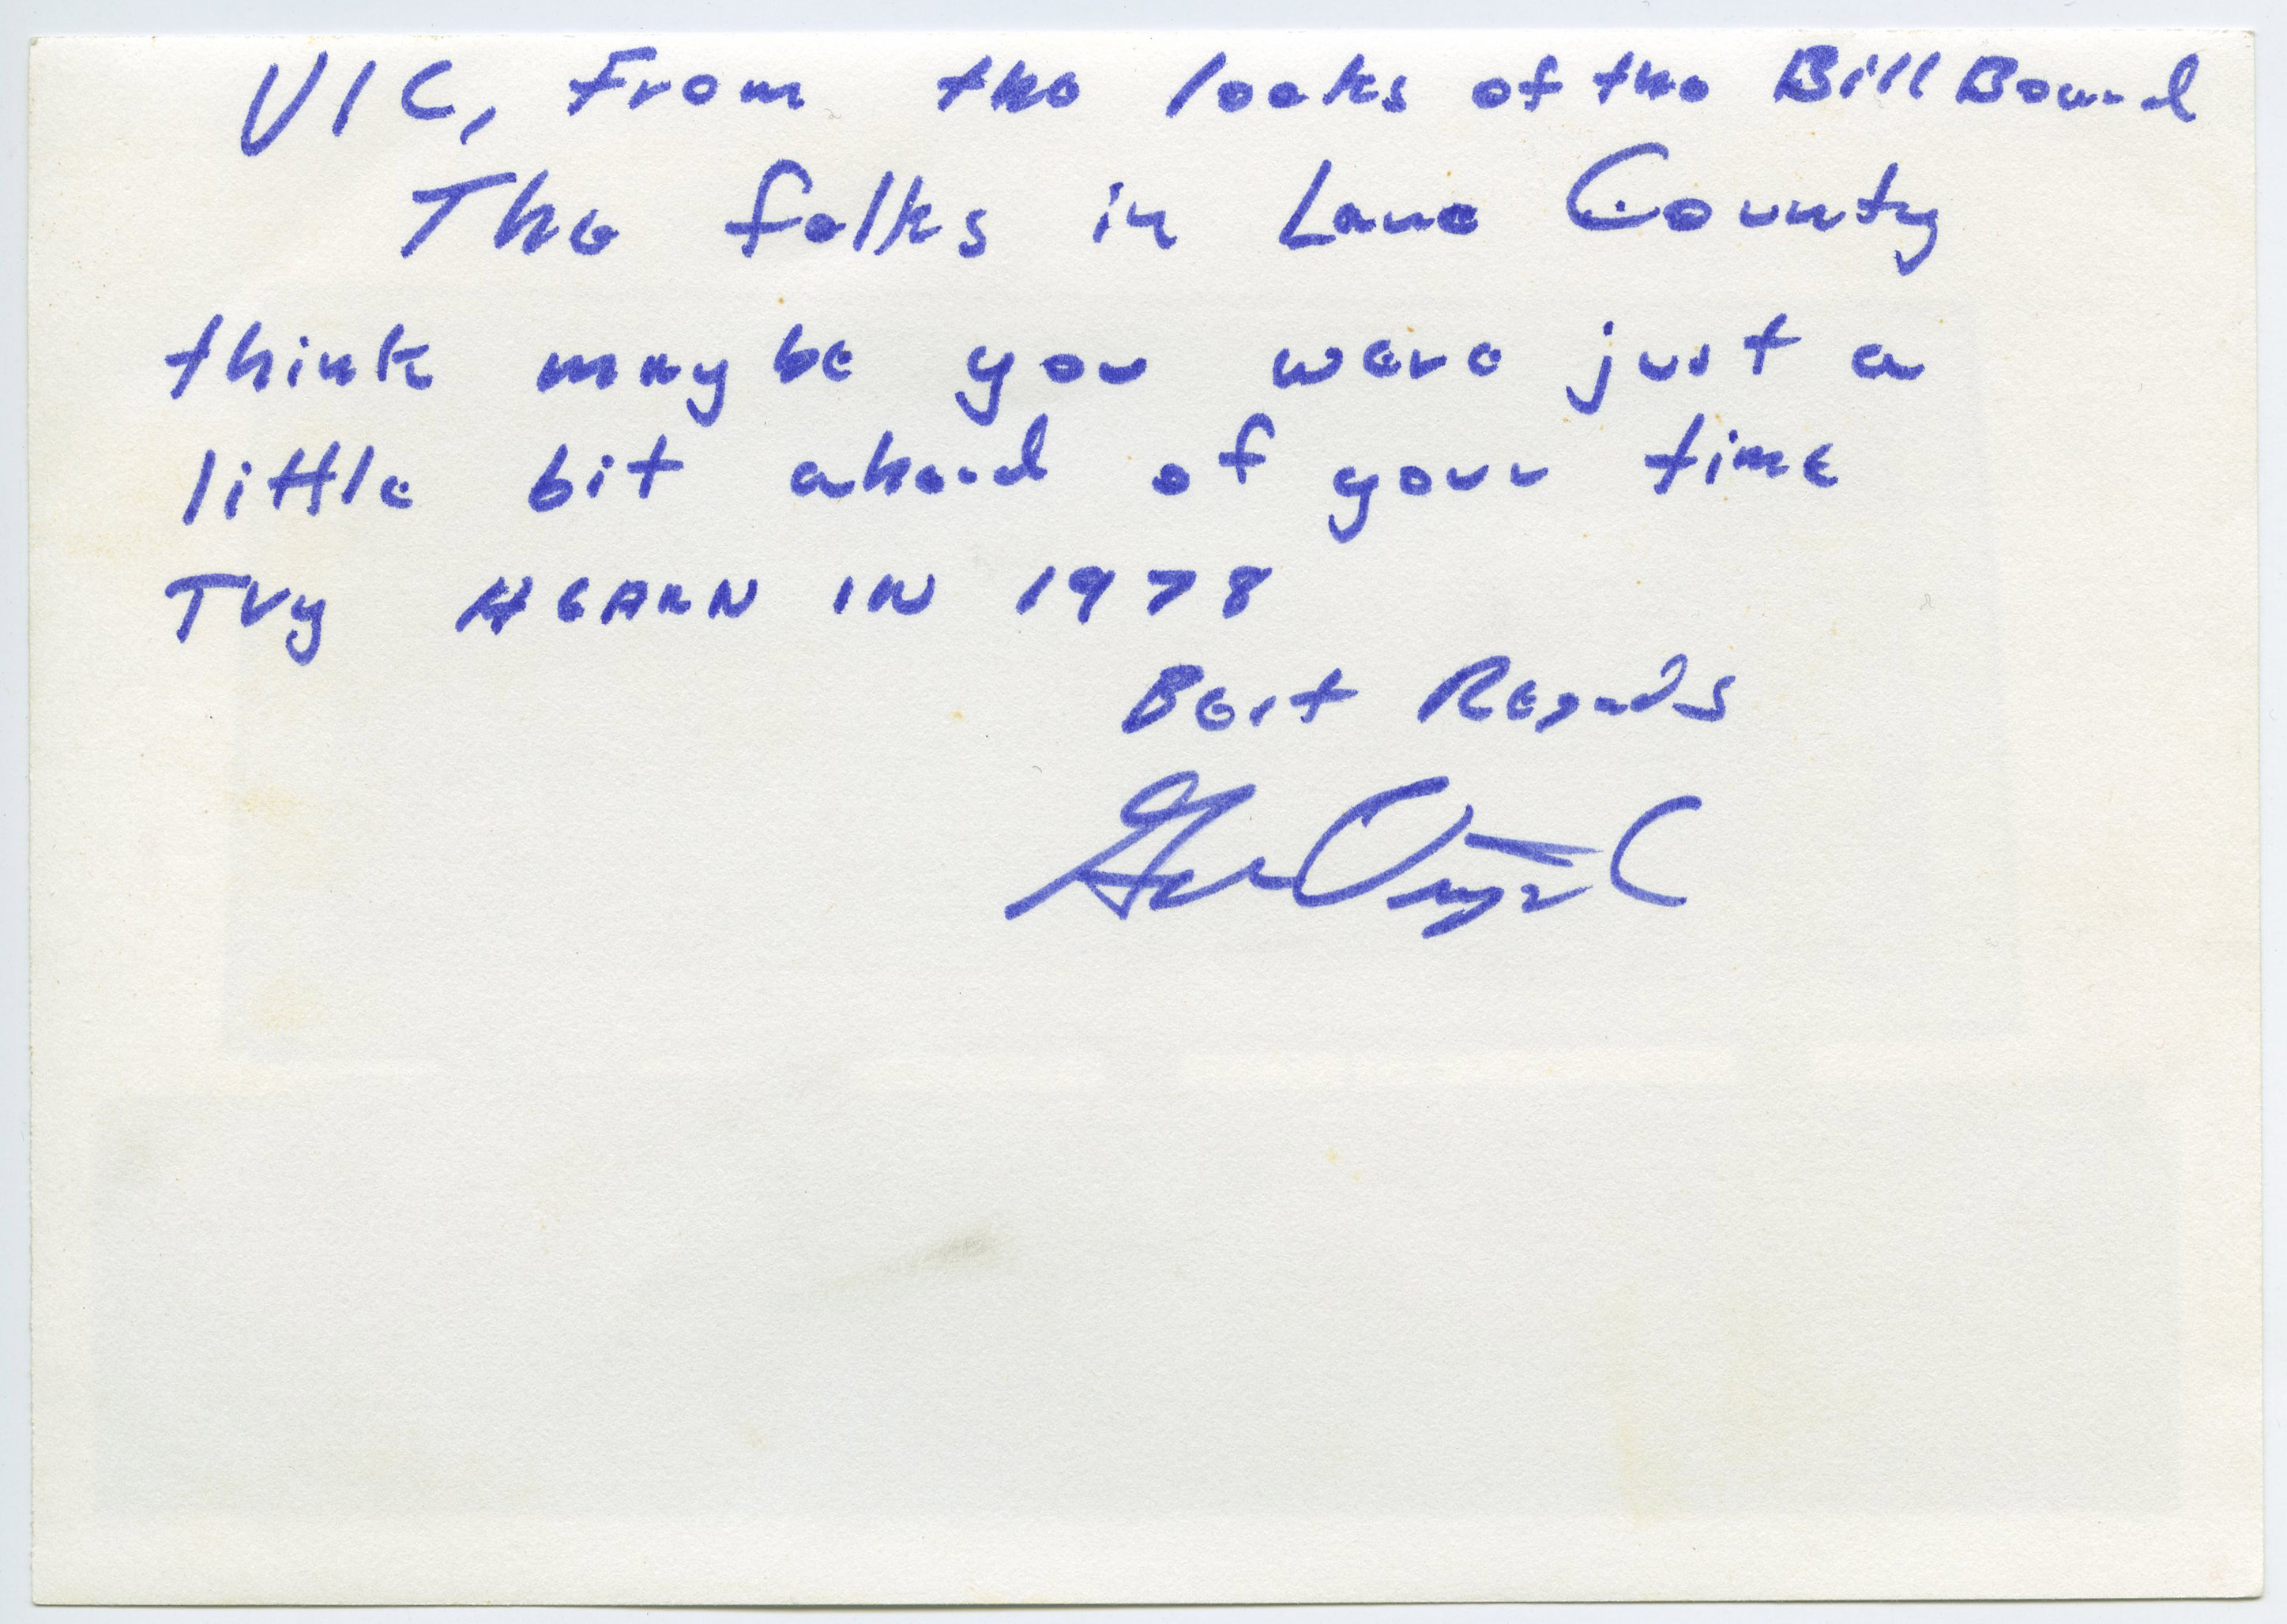 VIC, From the looks of the Bill Board
The folks in Lane County
think maybe you were just a
little bit ahead of your time
Try AGAIN IN 1978
Best Regards